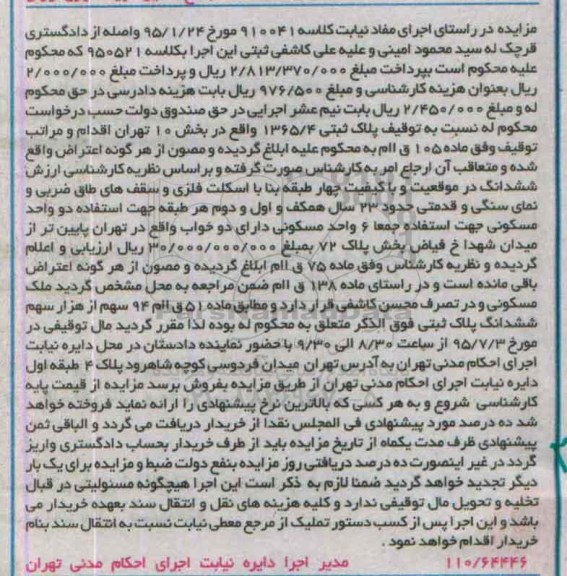 مزایده در راستای اجرای مفاد نیابت کلاسه ۹۱۰۰۴۱ مورخ ۹۵/۱/۲۴ واصله از دادگستری
قرچک له سید محمود امینی و علیه علی کاشفی ثبتی این اجرا بکلاسه ۹۵۰۵۲۱ که محکوم
علیه محکوم است بپرداخت مبلغ ۲/۸۱۳/۳۷۰/۰۰۰ ریال و پرداخت مبلغ ۲/۰۰۰/۰۰۰
ریال بعنوان هزینه کارشناسی و مبلغ ۹۷۶/۵۰۰ ریال بابت هزینه دادرسی در حق محکوم
له و مبلغ ۲/۴۵۰/۰۰۰ ریال بابت نیم عشر اجرایی در حق صندوق دولت حسب درخواست
محکوم له نسبت به توقیف پلاک ثبتی ۱۳۶۵/۴ واقع در بخش ۱۰ تهران اقدام و مراتب
توقیف وفق ماده ۱۰۵ ق اام به محکوم علیه ابلاغ گردیده و مصون از هر گونه اعتراض واقع
شده و متعاقب آن ارجاع امر به کارشناس صورت گرفته و بر اساس نظریه کارشناسی ارزش
ششدانگ در موقعیت و با کیفیت چهار طبقه بنا با اسکلت فلزی و سقف های طاق ضربی و
نمای سنگی و قدمتی حدود ۲۳ سال همکف و اول و دوم هر طبقه جهت استفاده دو واحد
مسکونی جهت استفاده جمعا ۶ واحد مسکونی دارای دو خواب واقع در تهران پایین تر از
میدان شهدا خ فیاض بخش پلاک ۷۲ بمبلغ ۳۰/۰۰۰/۰۰۰/۰۰۰ ریال ارزیابی و اعلام
گردیده و نظریه کارشناس وفق ماده ۷۵ ق اام ابلاغ گردیده و مصون از هر گونه اعتراض
باقی مانده است و در راستای ماده ۱۳۸ ق اام ضمن مراجعه به محل مشخص گردید ملک
مسکونی و در تصرف محسن کاشفی قرار دارد و مطابق ماده ۵۱ ق اام ۹۴ سهم از هزار سهم
ششدانگ پلاک ثبتی فوق الذکر متعلق به محکوم له بوده لذا مقرر گردید مال توقیفی در
مورخ ۹۵/۷/۳ از ساعت ۸/۳۰ الی ۹/۳۰ با حضور نماینده دادستان در محل دایره نیابت
اجرای احکام مدنی تهران به آدرس تهران میدان فردوسی کوچه شاهرود پلاک ۴ طبقه اول
دایره نیابت اجرای احکام مدنی تهران از طریق مزایده بفروش برسد مزایده از قیمت پایه
کارشناسی شروع و به هر کسی که بالاترین نرخ پیشنهادی را ارائه نماید فروخته خواهد
شد ده درصد مورد پیشنهادی فی المجلس نقدا از خریدار دریافت می گردد و الباقی ثمن
پیشنهادی ظرف مدت یکماه از تاریخ مزایده باید از طرف خریدار بحساب دادگستری واریز
گردد در غیر اینصورت ده درصد دریافتی روز مزایده بنفع دولت ضبط و مزایده برای یک بار
دیگر تجدید خواهد گردید ضمنا لازم به ذکر است این اجرا هیچگونه مسئولیتی در قبال
تخلیه و تحویل مال توقیفی ندارد و کلیه هزینه های نقل و انتقال سند بعهده خریدار می
باشد و این اجرا پس از کسب دستور تملیک از مرجع معطی نیابت نسبت به انتقال سند بنام
خریدار اقدام خواهد نمود .
۱۱۰/۶۴۴۴۶ مدیر اجرا دایره نیابت اجرای احکام مدنی تهران